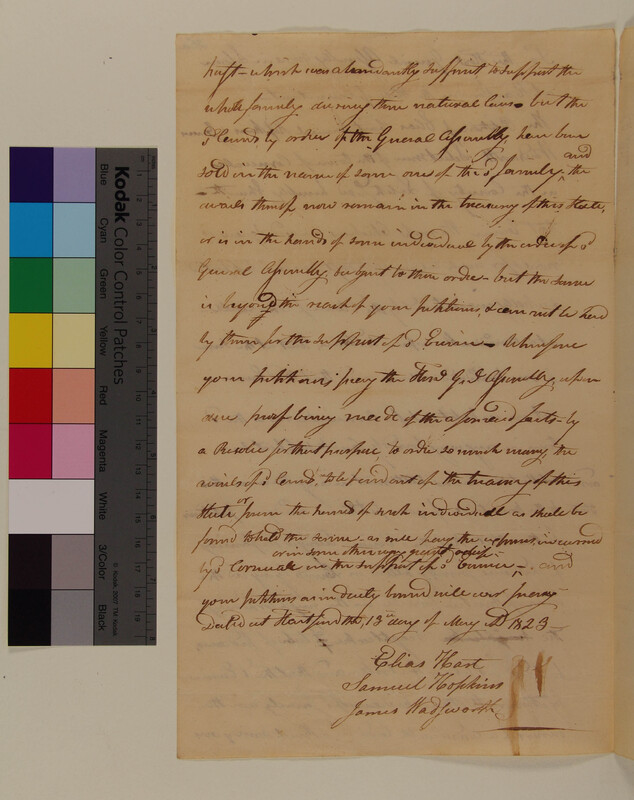 which was abundantly sufficient to support the
whole family during their natural lives - but the
sd lands by order of the General Assembly, have been
sold in the name of some one of the sd family, and the
avails thereof now remain in the treasury of this State,
or is in the hands of some individual by the order of sd
General Assembly subject to their order - but the same
is beyond the reach of your petitioners, & can not be had
by them for the support of sd - Wherefore
your petitioners pray the Hond Gl Assembly, upon
due proof being made of the aforesaid facts - by
a Resolve for that purpose, to order so much money, the
avails of sd land, to be paid out of the treasury of this
State or from the hands of such individual as shall be
found to hold the same - as will pay the expenses incurred
or in some other way grant relief
by sd Cornwall in the support of sd - and
your petitioners as in duty bound will ever pray -
Dated at Hartford the 13th day of May AD 1823
Elias Hart
Samuel Hopkins
James Wadsworth
Kodak Color Control Patches
© Kodak, 2007 TM: Kodak
Blue
Cyan
Green
Yellow
Red
Magenta
White
3/Color
Black